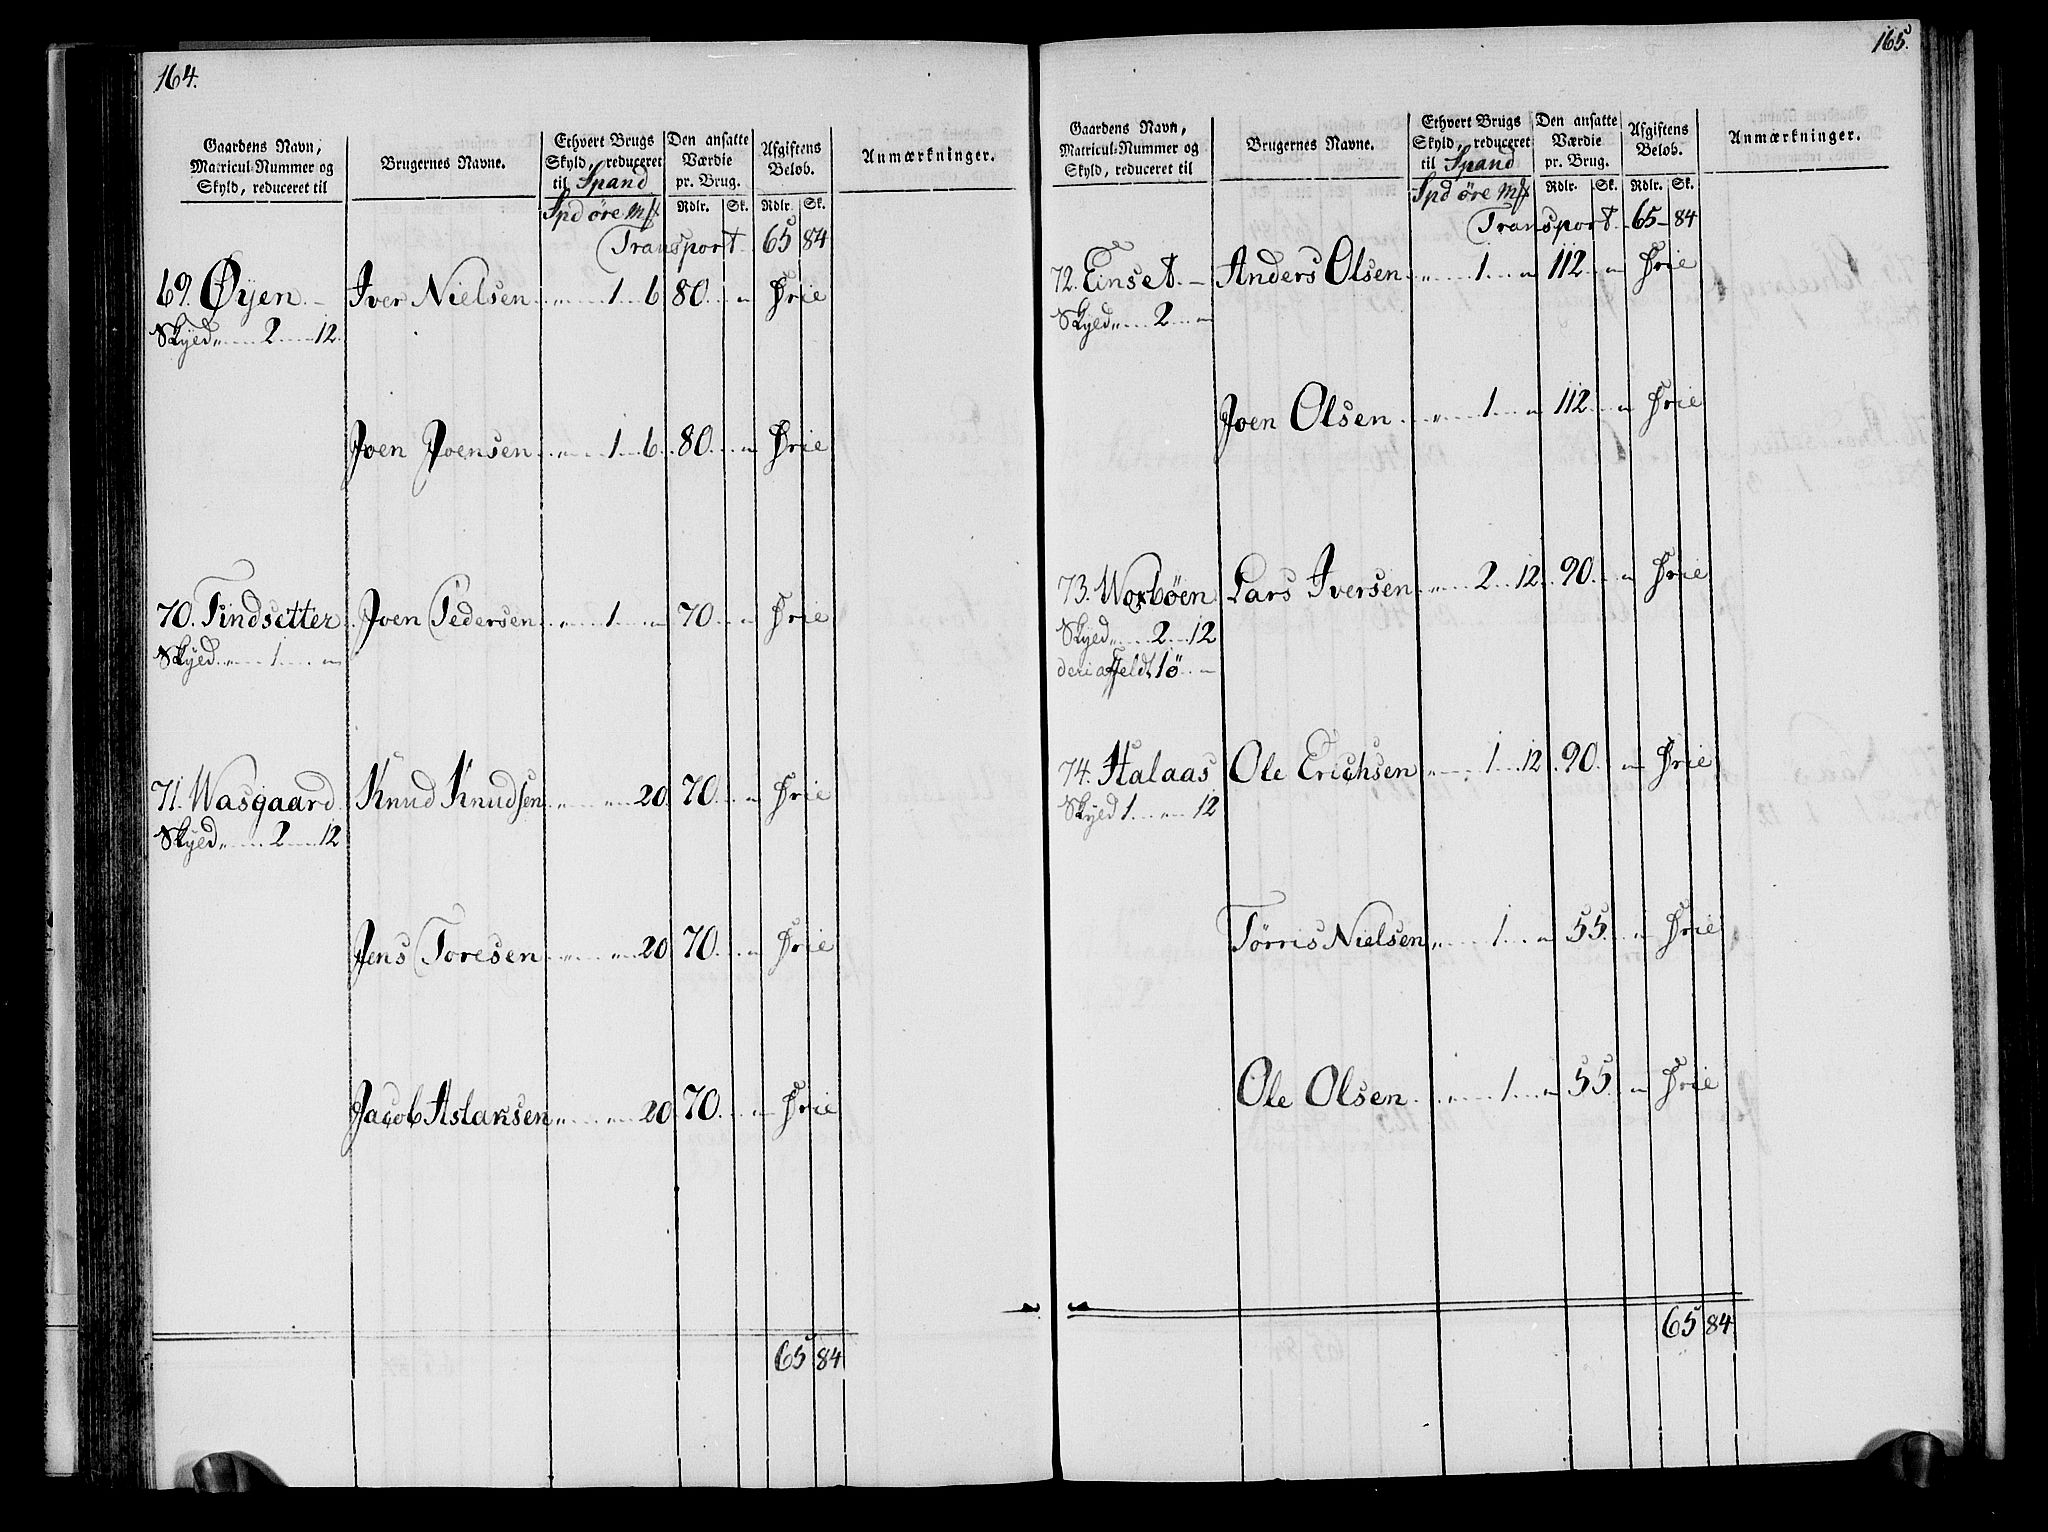 164.
Gaardens Navn, Matricul-Nummer og Skyld, reduceret til
Brugernes Navne.
Ethvert Brugs Skyld, reduceret til Spand
Den ansatte Værdie pr. Brug.
Afgiftens Beløb.
Anmærkninger.
Spd øre Mk Rdlr. Sk. Rdlr. Sk.
Transport 65 84
69. Øyen Iver Nielsen " 1 6 80 " Frie
Skyld " 2 12
Joen Joensen " 1 6 80 " Frie
70. Findsetter Joen Pedersen " 1 " 70 " Frie
Skyld " 1 "
71. Wasgaard Knud Knudsen " " 20 70 " Frie
Skyld " 2 12
Jens Toresen " " 20 70 " Frie
Jacob Aslaksen " " 20 70 " Frie
65 84
165.
Gaardens Navn, Matricul-Nummer og Skyld, reduceret til
Brugernes Navne.
Ethvert Brugs Skyld, reduceret til Spand
Den ansatte Værdie pr. Brug.
Afgiftens Beløb.
Anmærkninger.
Spd øre Mk Rdlr. Sk. Rdlr. Sk.
Transport 65 84
72. Einset Anders Olsen " 1 " 112 " Frie
Skyld " 2 "
Joen Olsen " 1 " 112 " Frie
73. Woxbøen Lars Iversen " 2 12 90 " Frie
Skyld " 2 12
deri affeldt 1 ø "
74. Halaas Ole Erichsen " 1 12 90 " Frie
Skyld 1 " 12
Tørris Nielsen " 1 " 55 " Frie
Ole Olsen " 1 " 55 " Frie
65 84